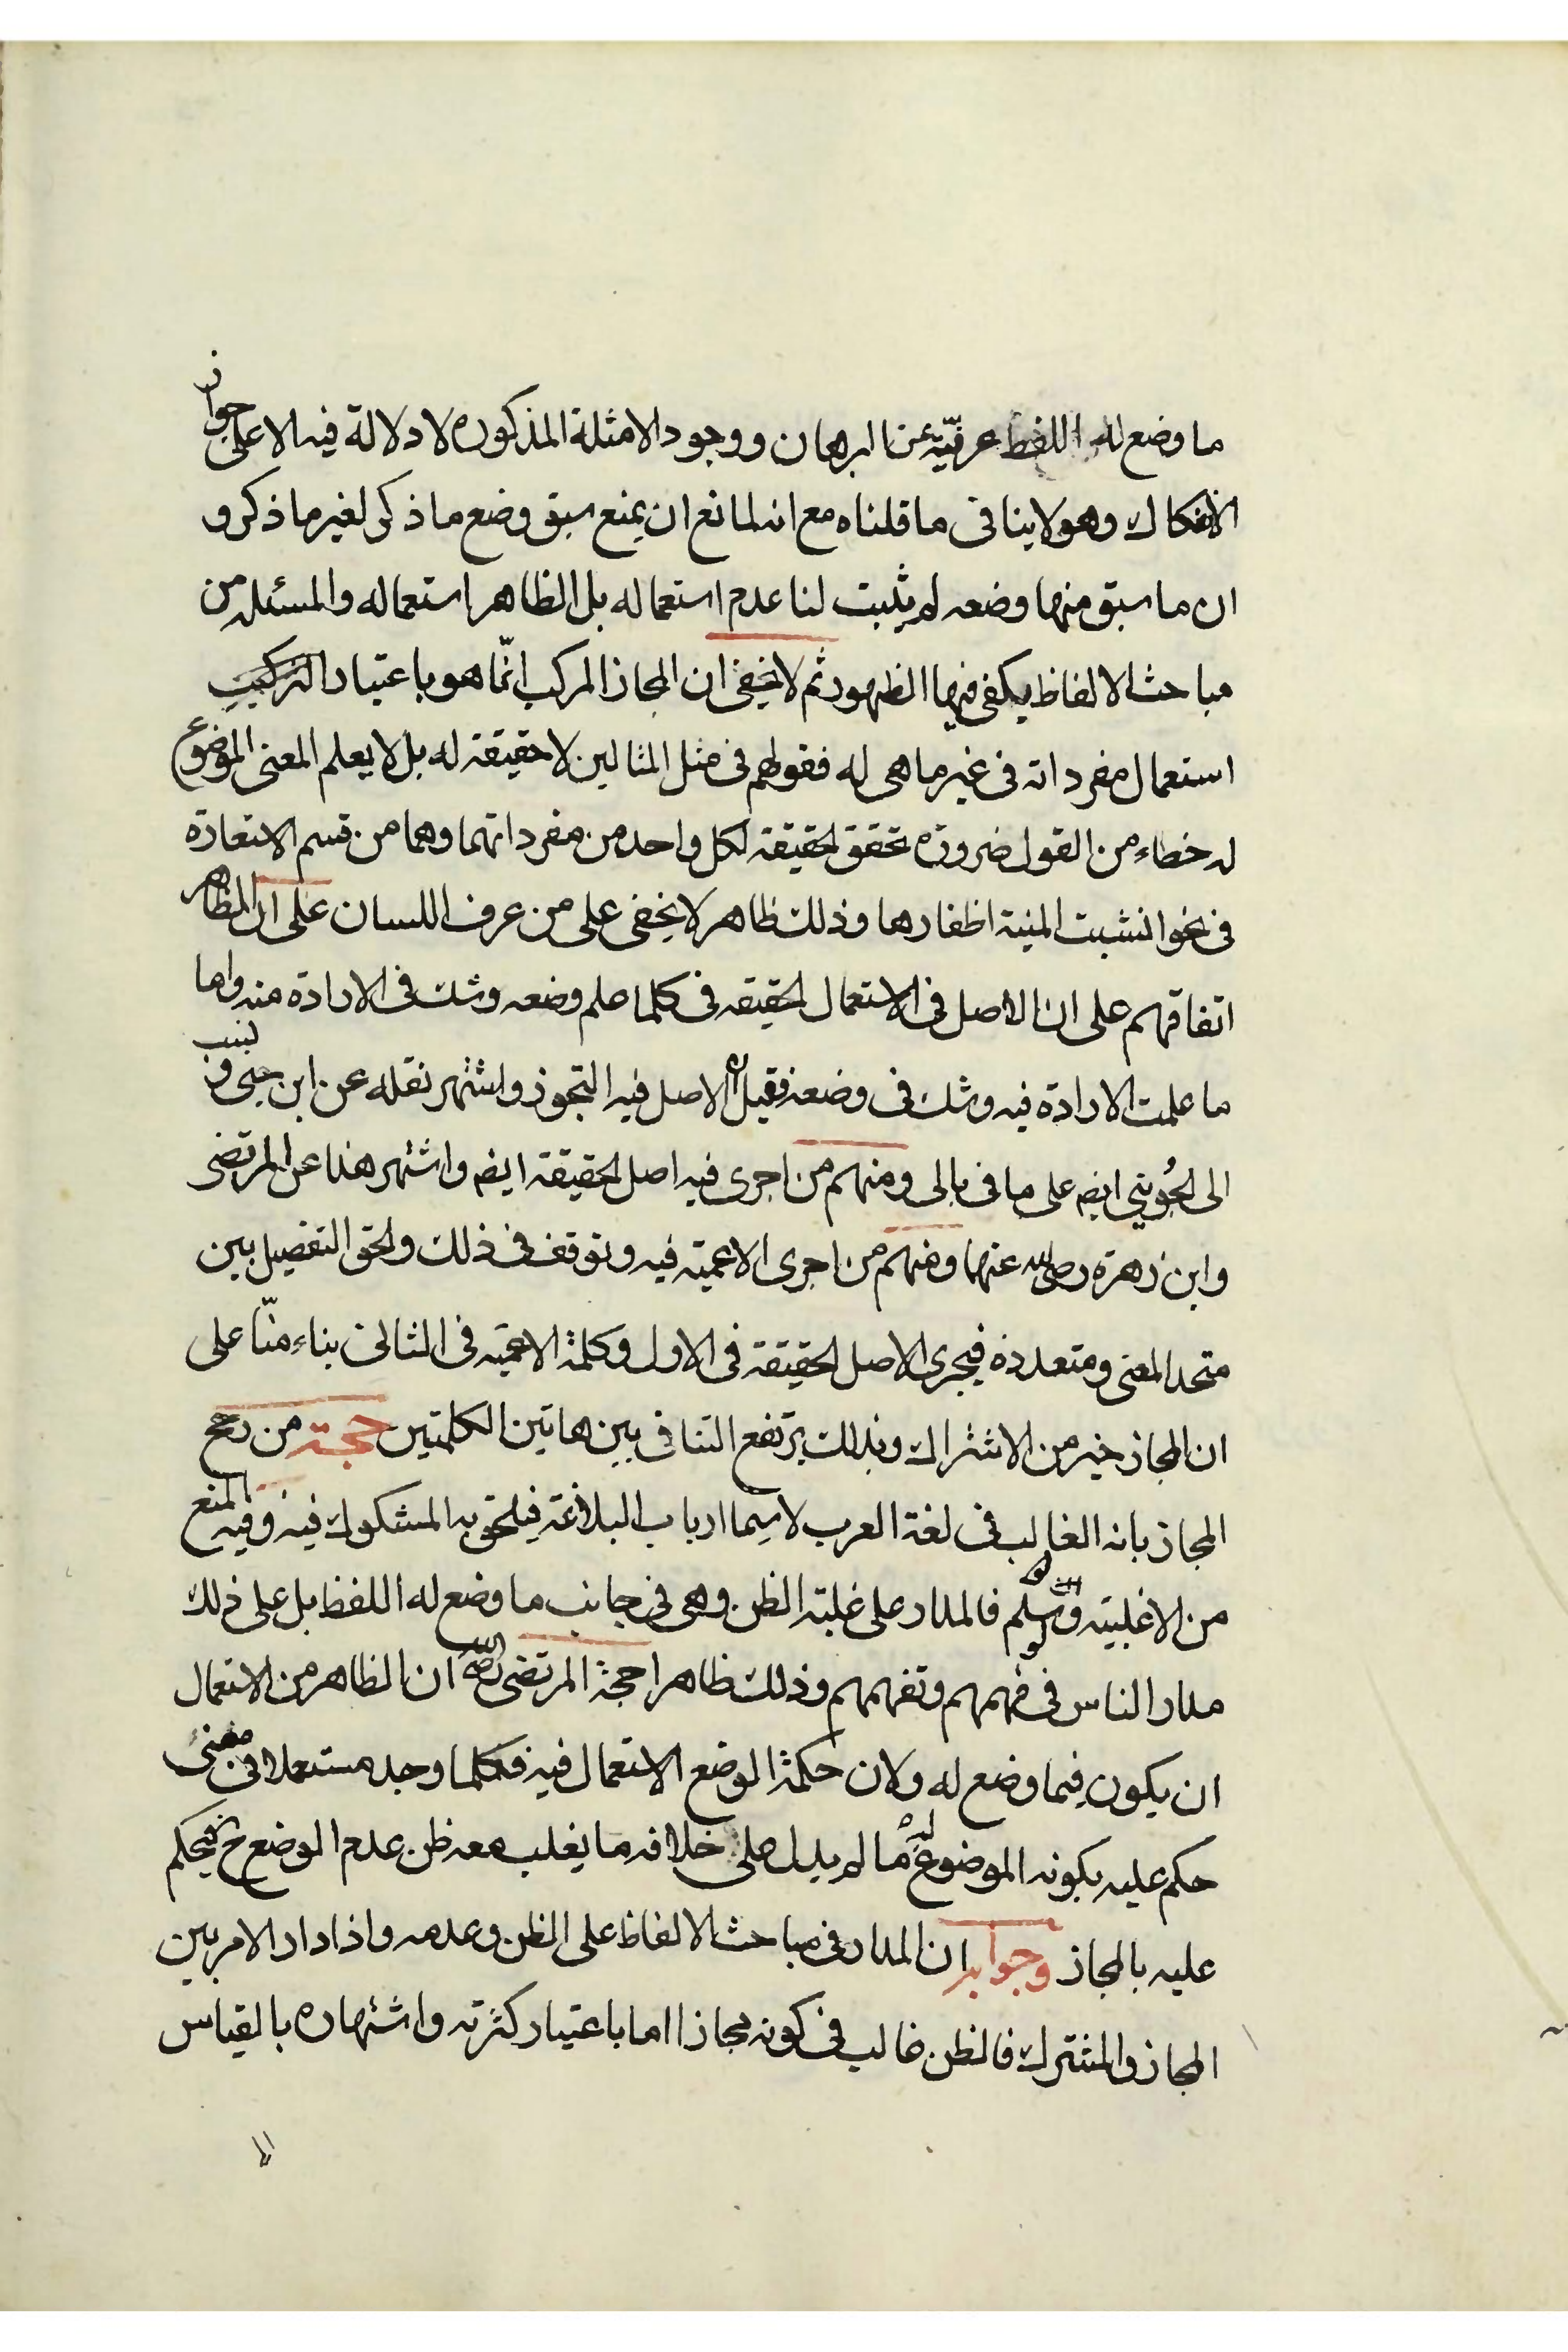 ما وضع له اللفظ عرفيّة عن البرهان ووجود الامثلة المذكوره لا دلالة فيه الا على جواز
الانفكاك وهو لا ينافى ما قلناه مع انه لمانع ان يمنع سبق وضع ما ذكر لغير ما ذكر و
ان ما سبق منها وضعه لم يثبت لنا عدم استعماله بل الظاهر استعماله والمسئله من
مباحث الالفاظ يكفى فيها الظهور ثم لا يخفى ان المجاز المركب انّما هو باعتبار التركيب
استعمال مفرداته فى غير ما هى له فقولهم فى مثل المثالين لا حقيقة له بل لا يعلم المعنى الموضوع
له خطاء من القول ضرورة تحقق الحقيقة لكل واحد من مفرداتهما وهما من قسم الاستعارة
فى نحو انشبت المنية اظفارها وذلك ظاهر لا يخفى على من عرف اللسان على ان الظاهر
اتفاقهم على ان الاصل فى الاستعمال الحقيقه فى كلما علم وضعه وشك فى الارادة منه واما
ما علمت الارادة فيه وشك فى وضعه فقيل ان الاصل فيه التجوز واشتهر نقله عن ابن جنى ونسب
الى الجُوينى ايضا على ما فى بالى ومنهم من اجرى فيه اصل الحقيقة ايضا واشتهر هذا عن المرتضى
وابن زهرة رضى الله عنهما ومنهم من اجرى الاعمية فيه وتوقف فى ذلك والحق التفصيل بين
متحد المعنى ومتعدده فيجرى الاصل الحقيقة فى الاول وكلمة الاعميّه فى الثانى بناء منّا على
ان المجاز خير من الاشتراك وبذلك يرتفع التنافى بين هاتين الكلمتين حجة من رجح
المجاز بانه الغالب فى لغة العرب لا سيما ارباب البلاغة فيلحق به المشكوك فيه وفيه المنع
من الاغلبية ولو سلم فالمدار على غلبة الظن وهى فى جانب ما وضع له اللفظ بل على ذلك
مدار الناس فى فهمهم وتفهمهم وذلك ظاهر احجة المرتضى رضى الله ان الظاهر من الاستعمال
ان يكون فيما وضع له ولان حكمة الوضع الاستعمال فيه فكلما وجد مستعملا فى معنى
حكم عليه بكونه الموضوع له ما لم يدل على خلافه ما يغلب معه ظن عدم الوضع ح فيحكم
عليه بالمجاز وجوابه ان المدار فى مباحث الالفاظ على الظن وعدمه واذا دار الامر بين
المجاز والمشترك فالظن غالب فى كونه مجازا اما باعتبار كثرته واشتهاره بالقياس